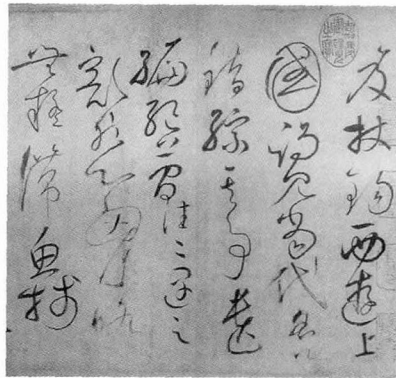 笈杖錫西遊上
國謁見當代名公
錯綜其事遺
編絕簡往往遇之
豁然心胸略
無疑滯魚牋